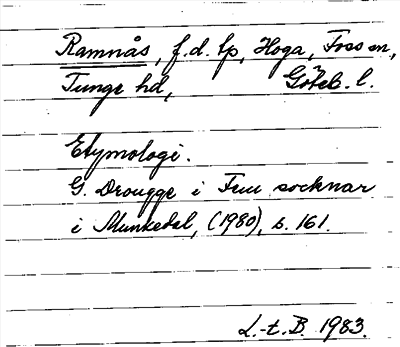 Ramnås, f.d. tp, Hoga, Foss sn,
Tunge hd, Göteb. l.
Etymologi.
G. Drougge i Fem socknar
i Munkedal, (1980), s. 161.
L.-t. B. 1983.